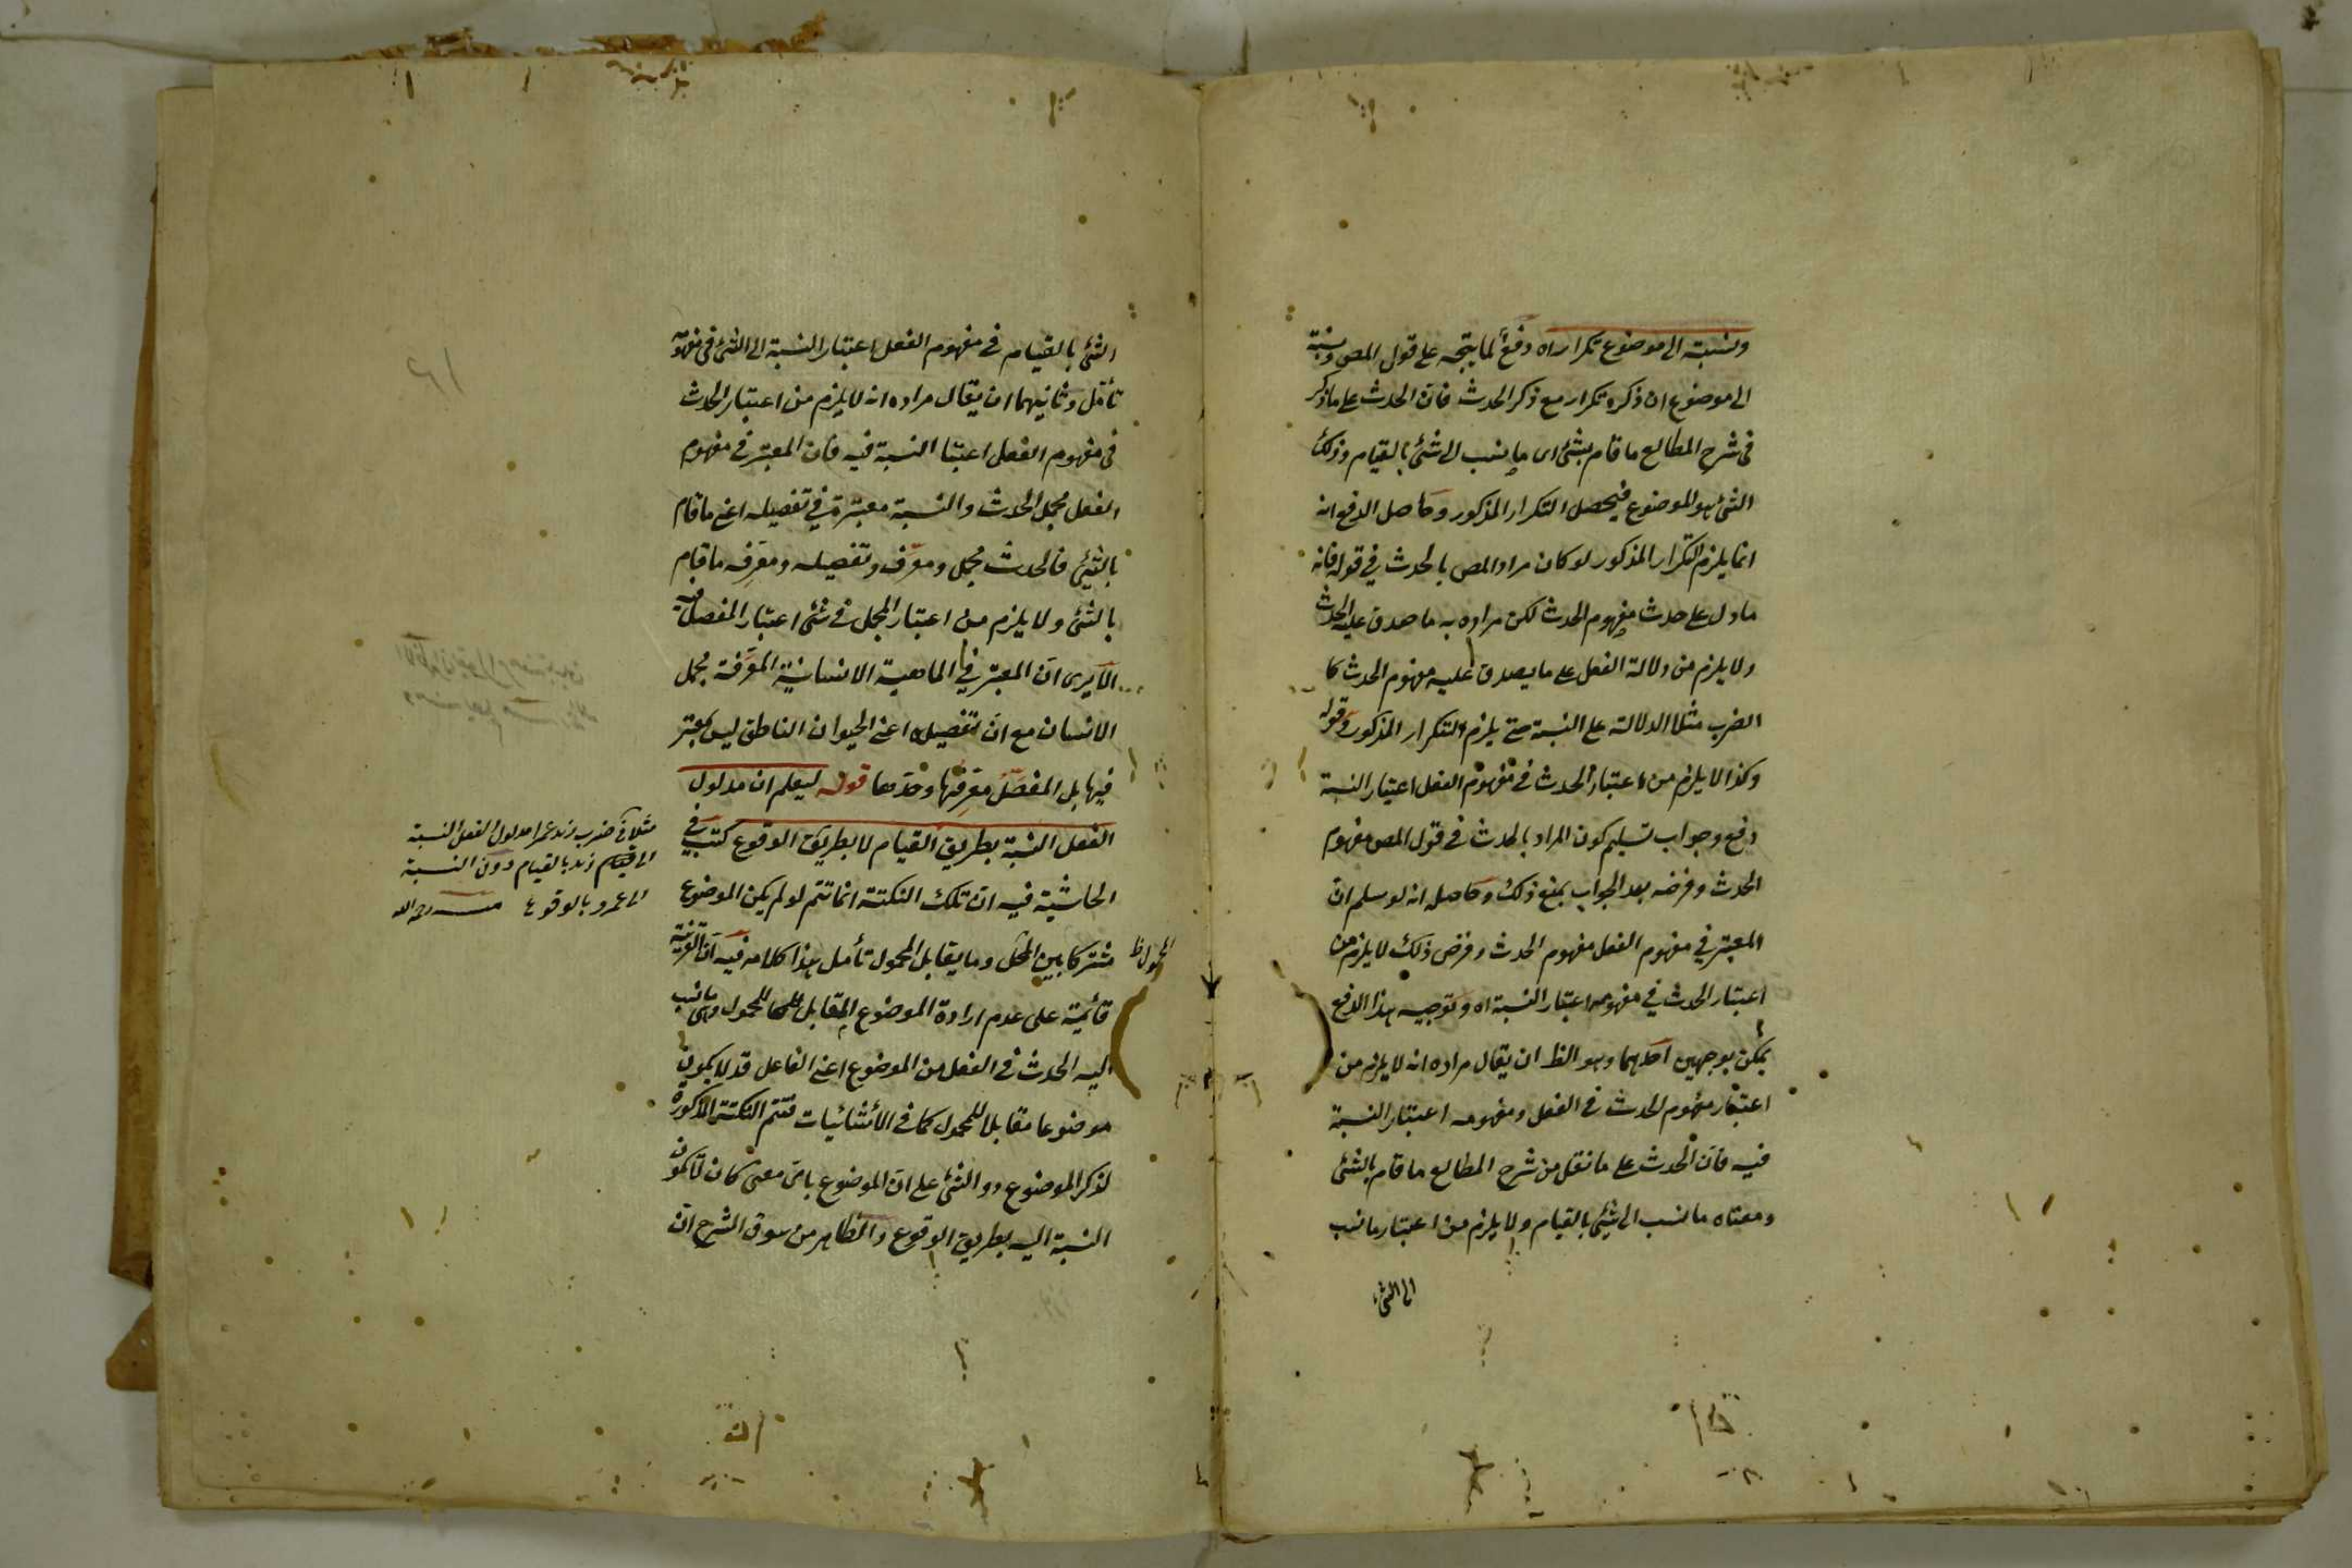 ونسبته الى موضوع تكرار اه دفع لما يتجه على قول المص ونسبته
الى موضوع ان ذكره تكرار مع ذكر الحدث فان الحدث على ما ذكر
فى شرح المطالع ما قام بشئ اى ما ينسب الى شئ بالقيام وذلك
الشئ هو الموضوع فيحصل التكرار المذكور وحاصل الدفع انه
انما يلزم التكرار المذكور لو كان مراد المص بالحدث فى قوله فانه
ما دل على حدث مفهوم الحدث لكن مراده به ما صدق عليه الحدث
ولا يلزم من دلالة الفعل على ما يصدق عليه مفهوم الحدث كا
الضرب مثلا الدلالة على النسبة حتى يلزم التكرار المذكور وقوله
وكذا لا يلزم من اعتبار الحدث فى مفهوم الفعل اعتبار النسبة
دفع وجواب تسليم كون المراد بالحدث فى قول المص مفهوم
الحدث وفرضه بعد الجواب بمنع ذلك وحاصله انه لو سلم ان
المعتبر فى مفهوم الفعل مفهوم الحدث وفرض ذلك لا يلزم من
اعتبار الحدث فى مفهومه اعتبار النسبة اه وتوجيه هذا الدفع
يمكن بوجهين احدهما وهو الظ ان يقال مراده انه لا يلزم من
اعتبار مفهوم الحدث فى الفعل ومفهومه اعتبار النسبة
فيه فان الحدث على ما نقل من شرح المطالع ما قام بالشئ
ومعناه ما نسب الى شئ بالقيام ولا يلزم من اعتبار ما نسب
الى الشئ
الشئ بالقيام فى مفهوم الفعل اعتبار النسبة الى الشئ فى مفهومه
تأمل وثانيهما ان يقال مراده انه لا يلزم من اعتبار الحدث
فى مفهوم الفعل اعتبا النسبة فيه فان المعتبر فى مفهوم
الفعل مجمل الحدث والنسبة معتبرة فى تفصيله اعنى ما قام
بالشئ فالحدث مجمل ومعرف وتفصيله ومعرفه ما قام
بالشئ ولا يلزم من اعتبار المجمل فى شئ اعتبار المفصل فيه
الا يرى ان المعتبر فى الماهية الانسانية المعرفة مجمل
الانسان مع ان تفصيله اعنى الحيوان الناطق ليس بمعتبر
فيها بل المفصل معرفها وحدها قوله ليعلم ان مدلول
الفعل النسبة بطريق القيام لا بطريق الوقوع كتب فى
الحاشية فيه ان تلك النكتة انما تتم لو لم يكن الموضوع
مشتركا بين المحل وما يقابل المحمول تأمل هذا كلامه فيه ان القرينة
قائمة على عدم ارادة الموضوع المقابل للمحمول وهى ما نسب
اليه الحدث فى الفعل من الموضوع اعنى الفاعل قد لا يكون
موضوعا مقابلا للمحمول كما فى الانشائيات فتتم النكتة المذكورة
لذكر الموضوع دو الشئ على ان الموضوع باى معنى كان لا يكون
النسبة اليه بطريق الوقوع والظاهر من سوق الشرح ان
مثلا فى ضرب زيد عمرا مدلول الفعل النسبة
الى زيد بالقيام دون النسبة
الى عمرو بالوقوع منه رحمه الله
المحمول ظ